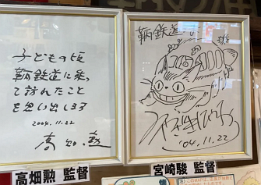 子どもの頃
鞆鉄道に乗って
訪れたこと
を思い出します
2004.11.22
高畑勲
高畑勲 監督
鞆鉄道
'04.11.22
宮崎駿 監督